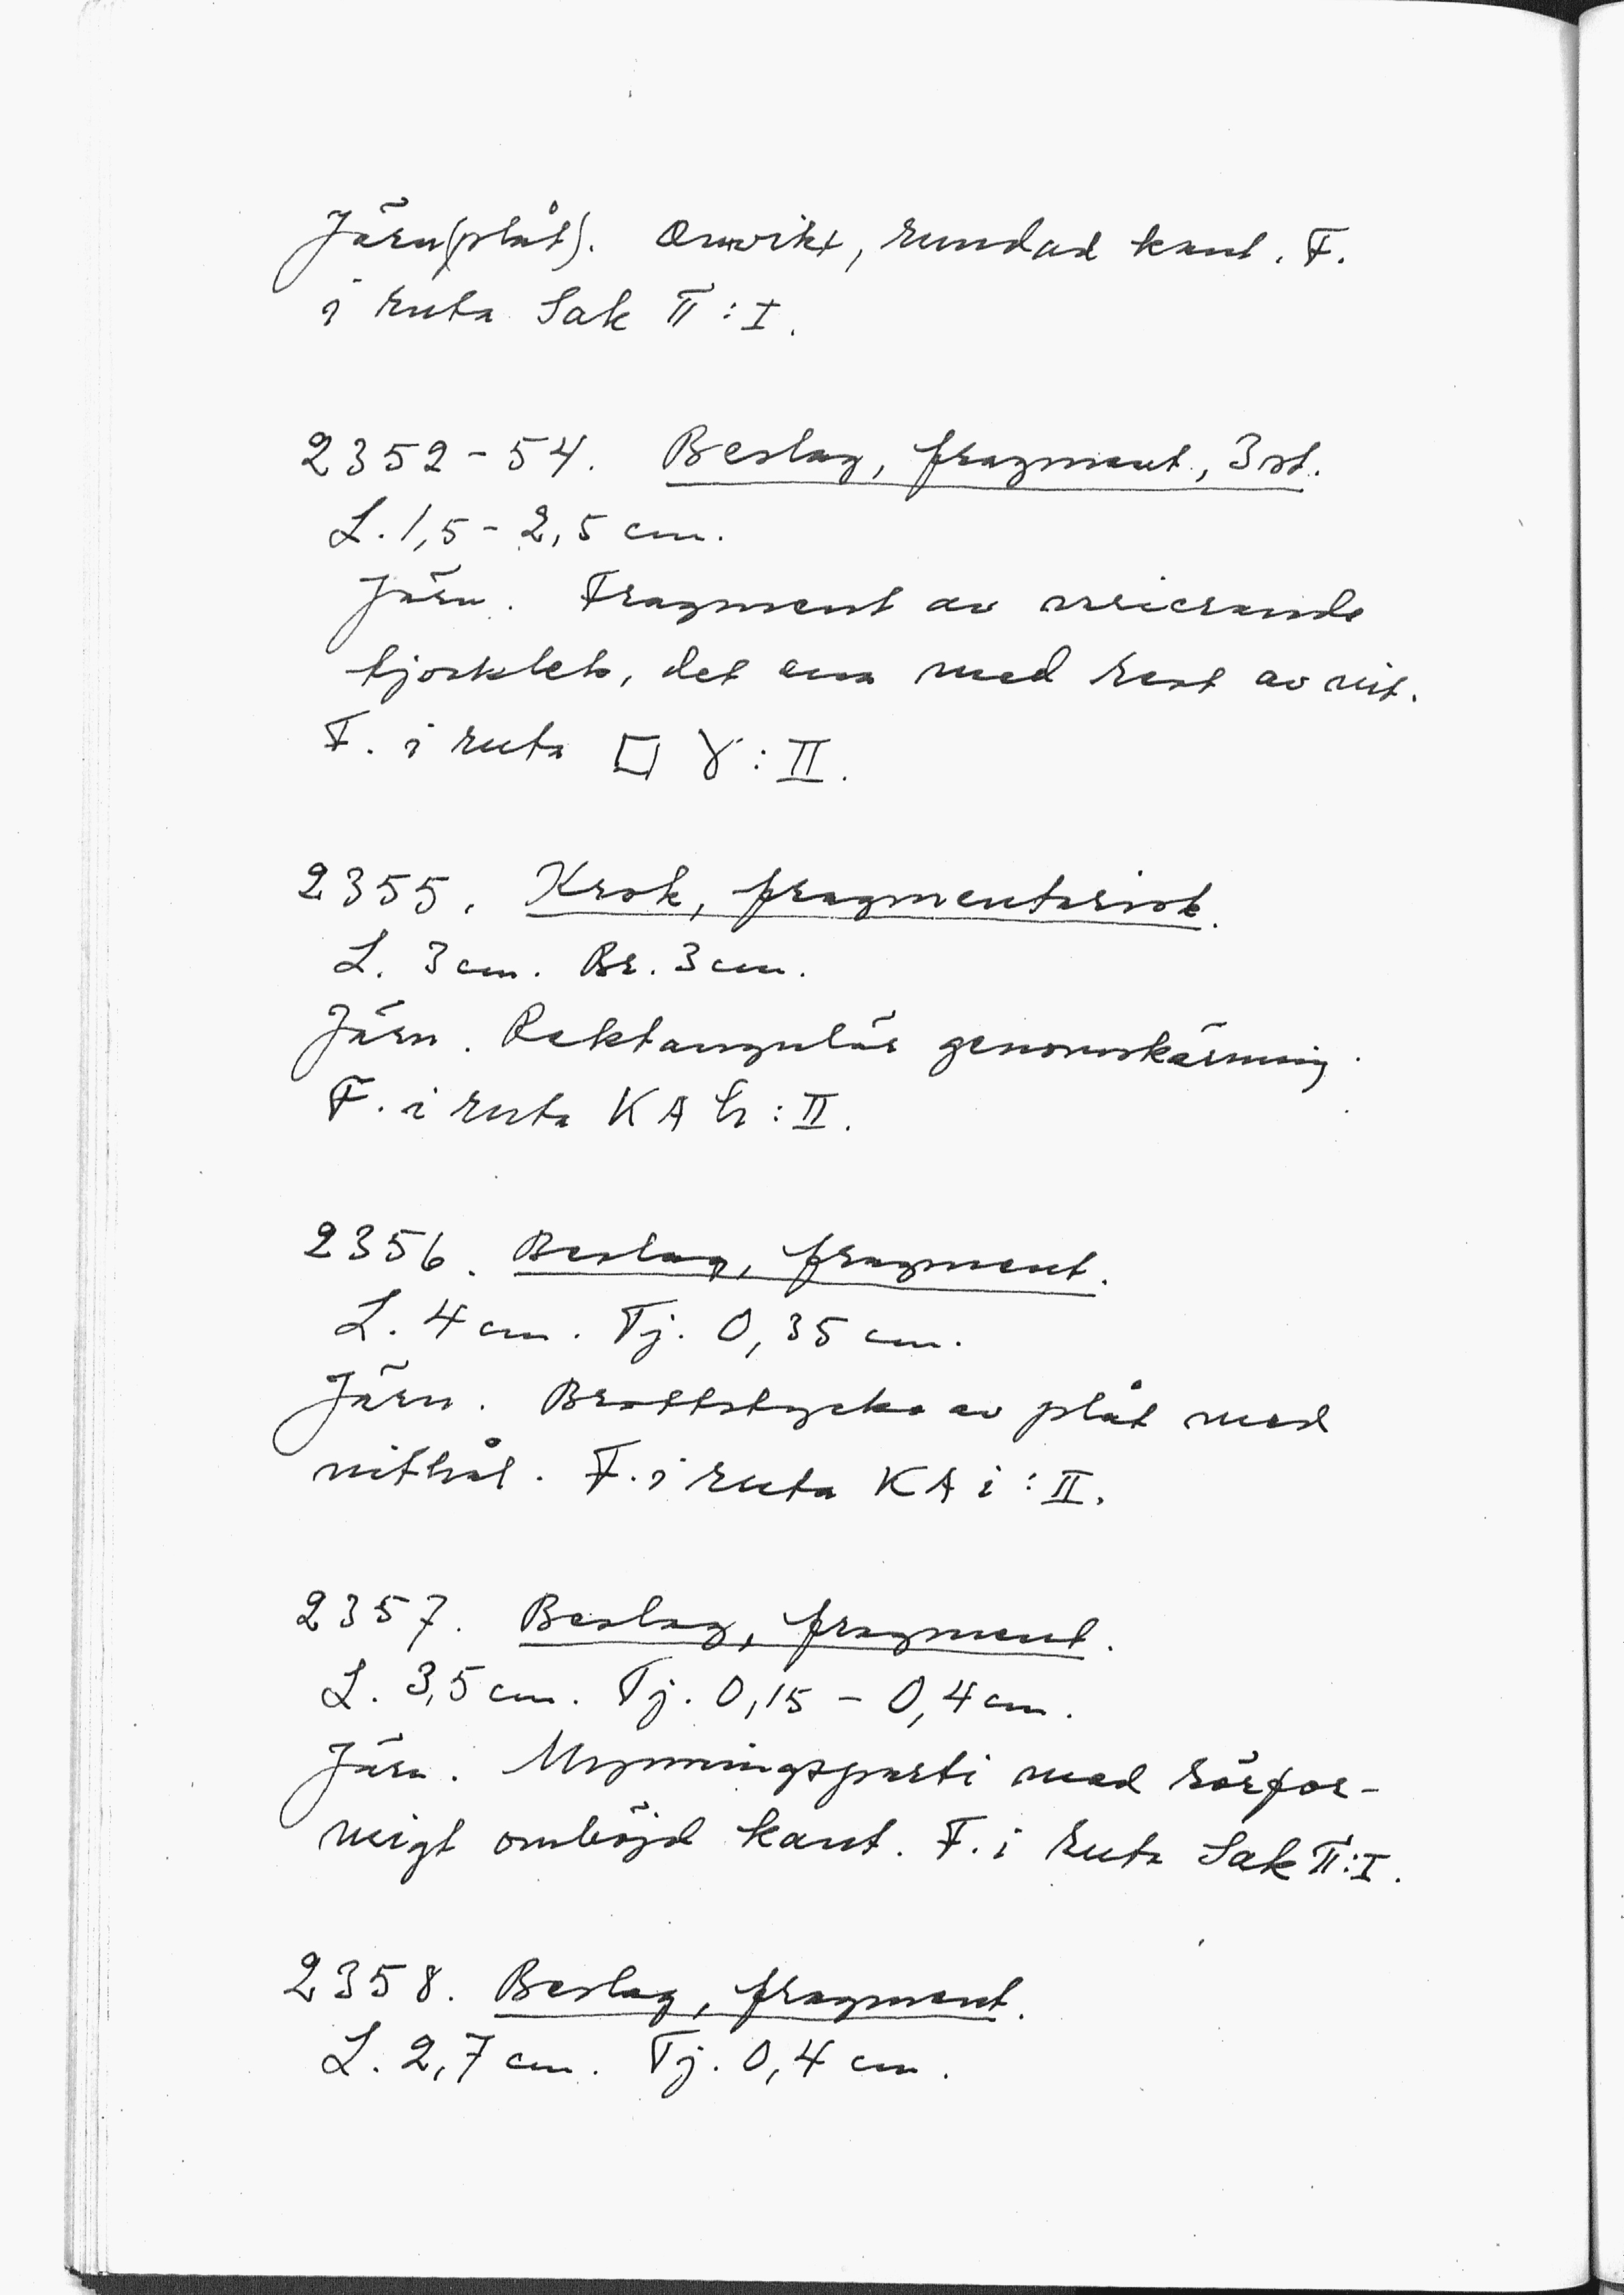 Järn(plåt). Omvikt, rundad kant. F.
i ruta Sak II:I.
2352-54. Beslag, fragment, 3 st.
L. 1,5-2,5 cm.
Järn. Fragment av varierande
tjocklek, det ena med rest av nit.
F. i ruta □ γ:II.
2355. Krok, fragmentarisk.
L. 3 cm. Br. 3 cm.
Järn. Rektangulär genomskärning.
F. i ruta KA h:II.
2356. Beslag, fragment.
L. 4 cm. Tj. 0,35 cm.
Järn. Brottstycke av plåt med
nithål. F. i ruta KA i:II.
2357. Beslag, fragment.
L. 3,5 cm. Tj. 0,15 - 0,4 cm.
Järn. Mynningsparti med rörfor-
migt omböjd kant. F. i ruta Sak II:I.
2358. Beslag, fragment.
L. 2,7 cm. Tj. 0,4 cm.